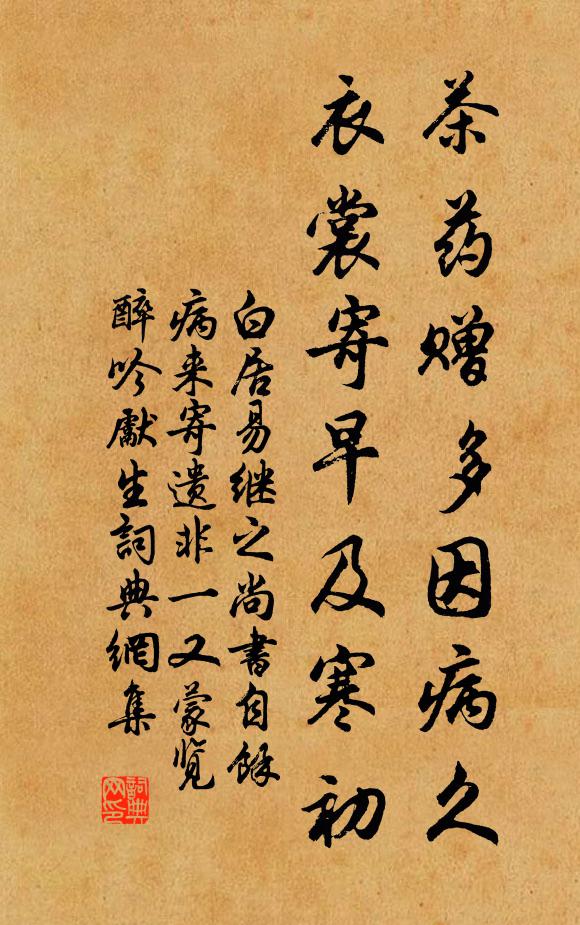 茶药赠多因病久
衣裳寄早及寒初
白居易继之尚書自餘
病来寄遗非一又蒙览
醉吟獻生詞典網集
詞典网印